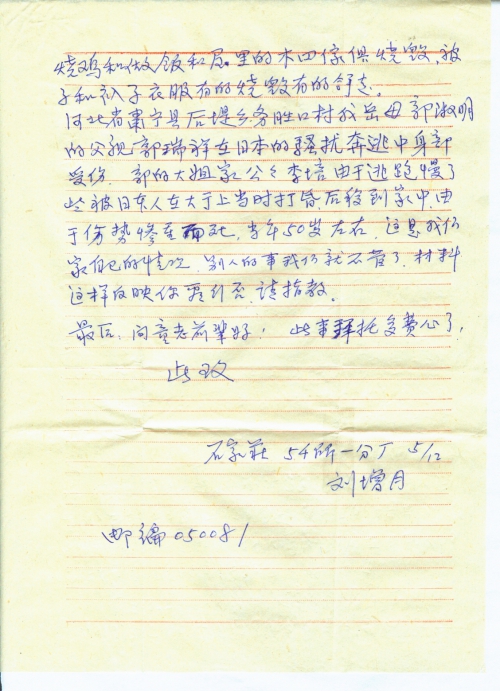 烧鸡和做饭和屋里的木四傢俱烧毁，被
子和衣服有的烧毁有的拿走。
河北省肃宁县后堤乡务胜口村我岳母郭淑明
的父亲郭瑞祥在日本的骚扰奔逃中身部
受伤。郭的大姐家公公李培由于逃跑慢了
些被日本人在大于上当时打昏后移到家中，由
于伤势惨重而死，当年50岁左右，这是我们
家自己的情况，别人的事我们就不管了，材料
这样反映你看行否，请指教。
最后，向童老前辈好！此事拜托多费心了，
此致
石家莊 54所一分厂 5/12
刘增月
邮编 050081